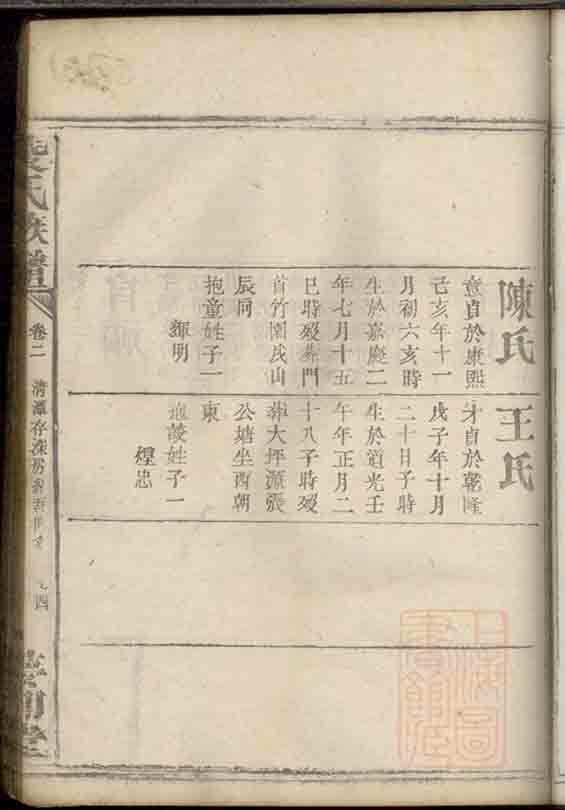 陳氏
意貞於康熙
己亥年十一
月初六亥時
生於嘉慶二
年七月十五
巳時歿葬門
首竹園戌山
辰向
抱童姓子一
輝明
王氏
才貞於乾隆
戊子年十月
二十日子時
生於道光壬
午年正月二
十八子時歿
葬大坪源張
公塘坐酉朝
東
姓子一
煌忠
氏族譜
卷二
清潭存深房
四
上海圖
書館藏